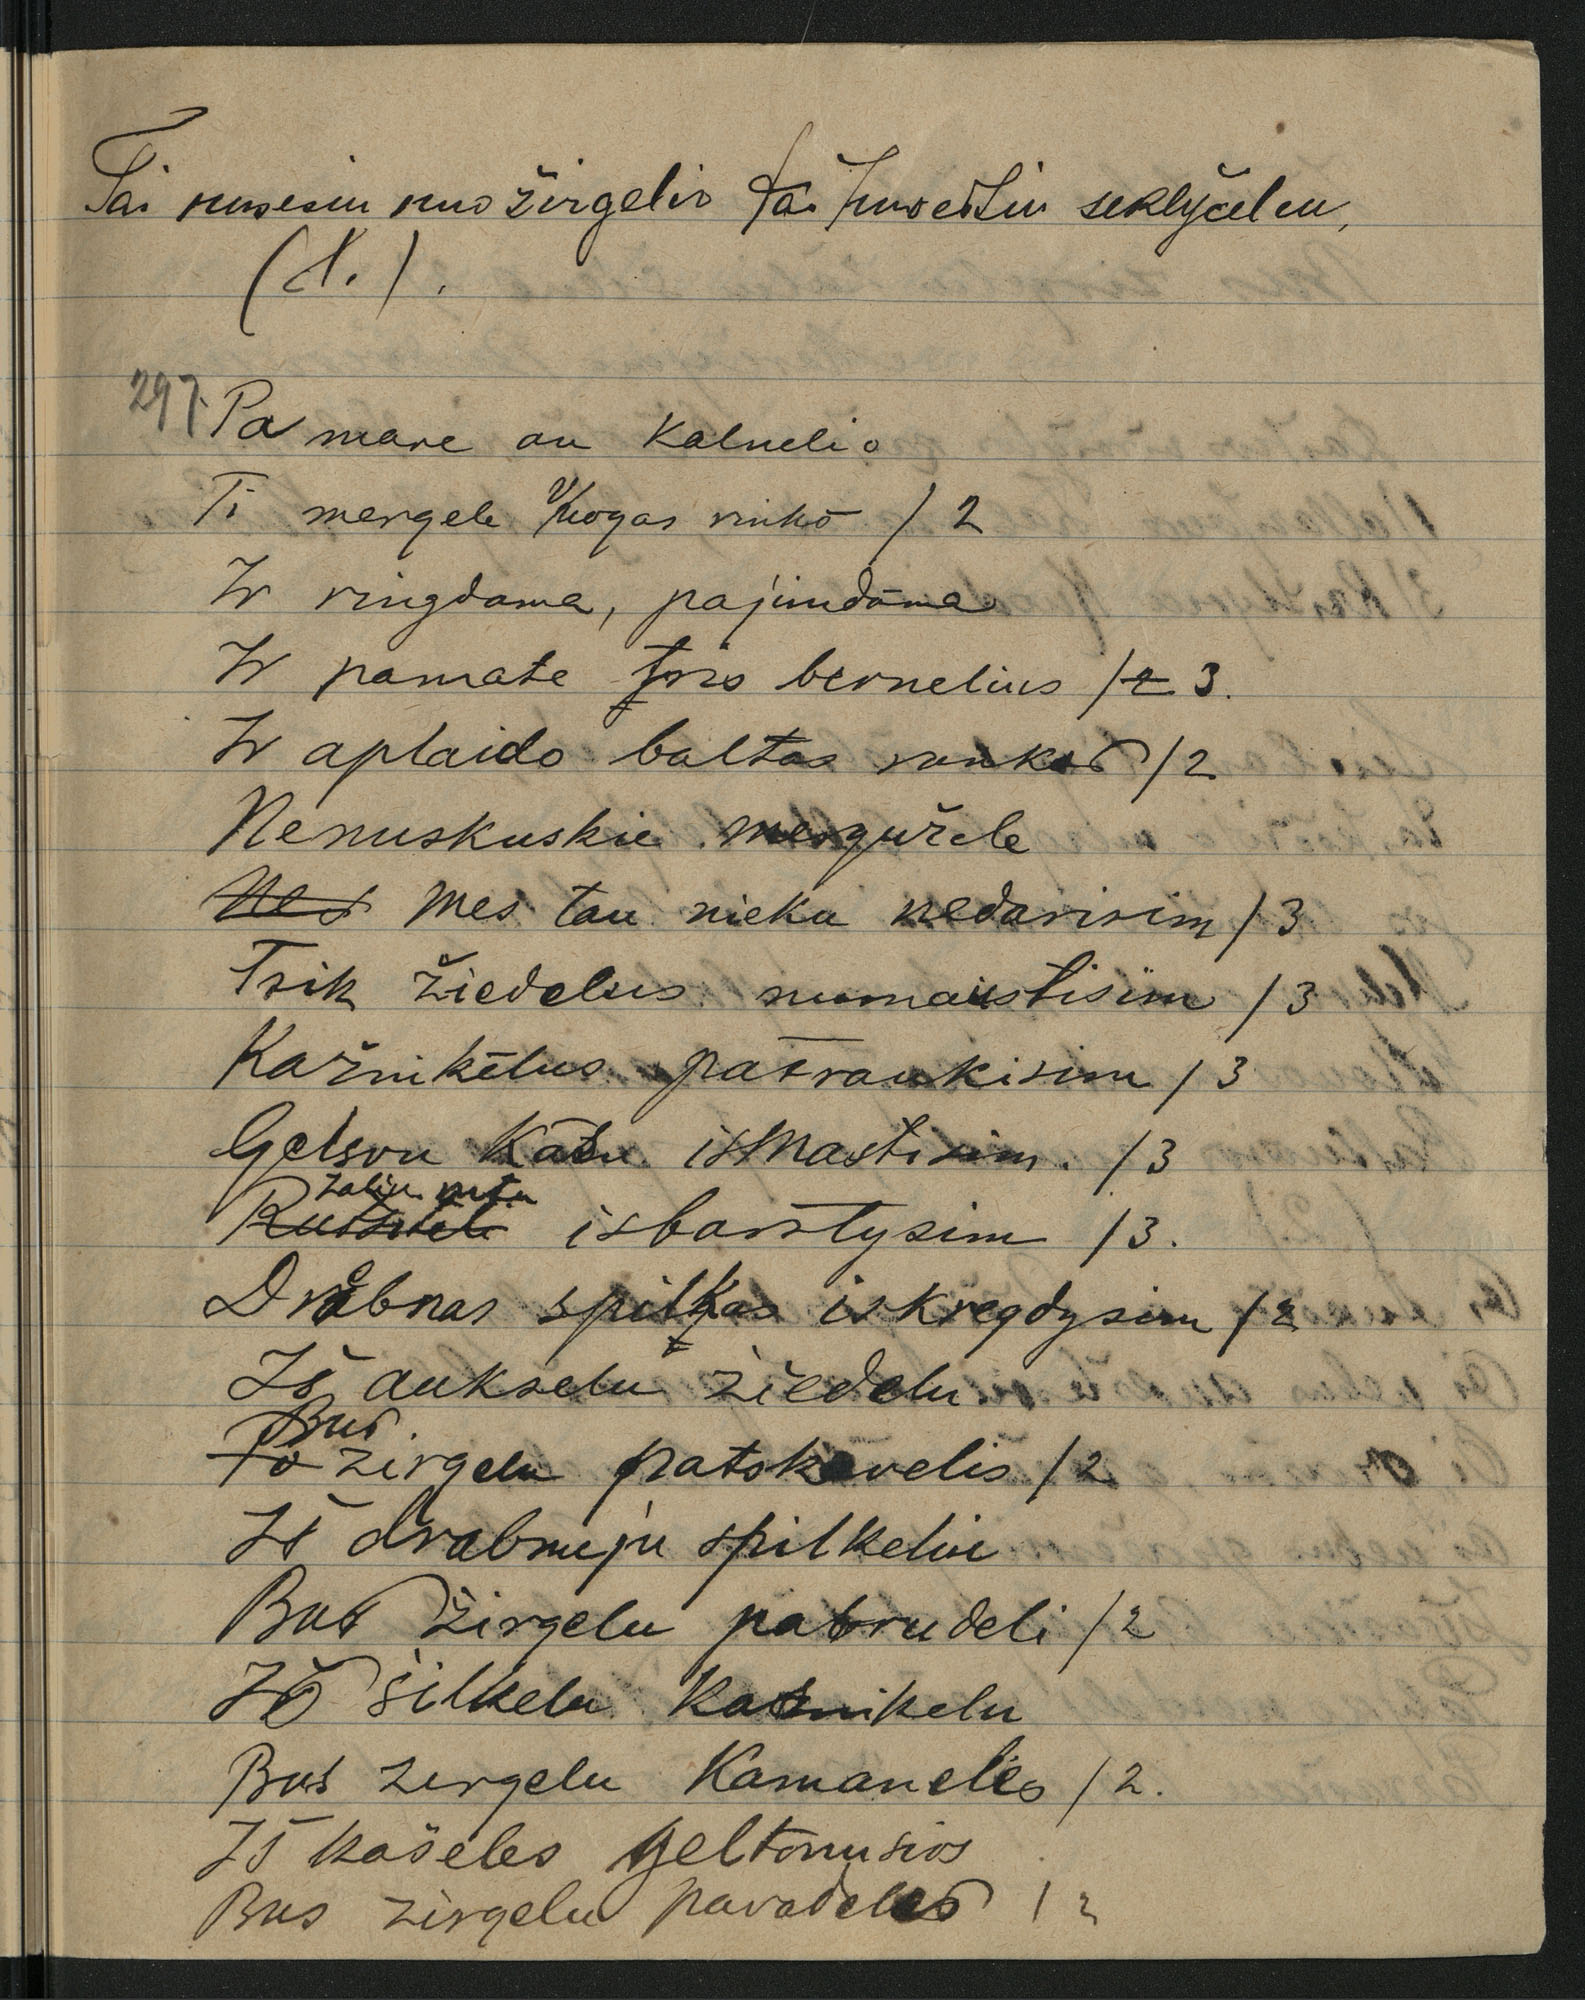 Tai nusesiu nuo žirgelio tai nuvesiu seklyčelen,
(d.).
297. Pa mare an kalnelio
Ti mergele vuogas rinko /2
Ir ringdama, pajimdama
Ir pamate tris bernelius /2 3.
Ir aplaido baltas rankas /2
Nenuskuskie mergužele
Nes Mes tau nieka nedarisim /3
Tik žiedelus numaustisim /3
Kažnikelus patraukisim /3
Gelsvu kasu ismastisim. /3
zaliu ruta
isbarstysim /3.
Drabnas spilkas iskregdysim /2
Iš aukselu žiedelu
Bus
Po zirgelu patskavelis /2
Iš drabnuju spilkeliu
Bus žirgelu pabrudeli /2
Iš šilkelu kasnikelu
Bus zirgelu kamaneles /2.
Iš kašeles geltonusios
Bus zirgelu pavadeles /2